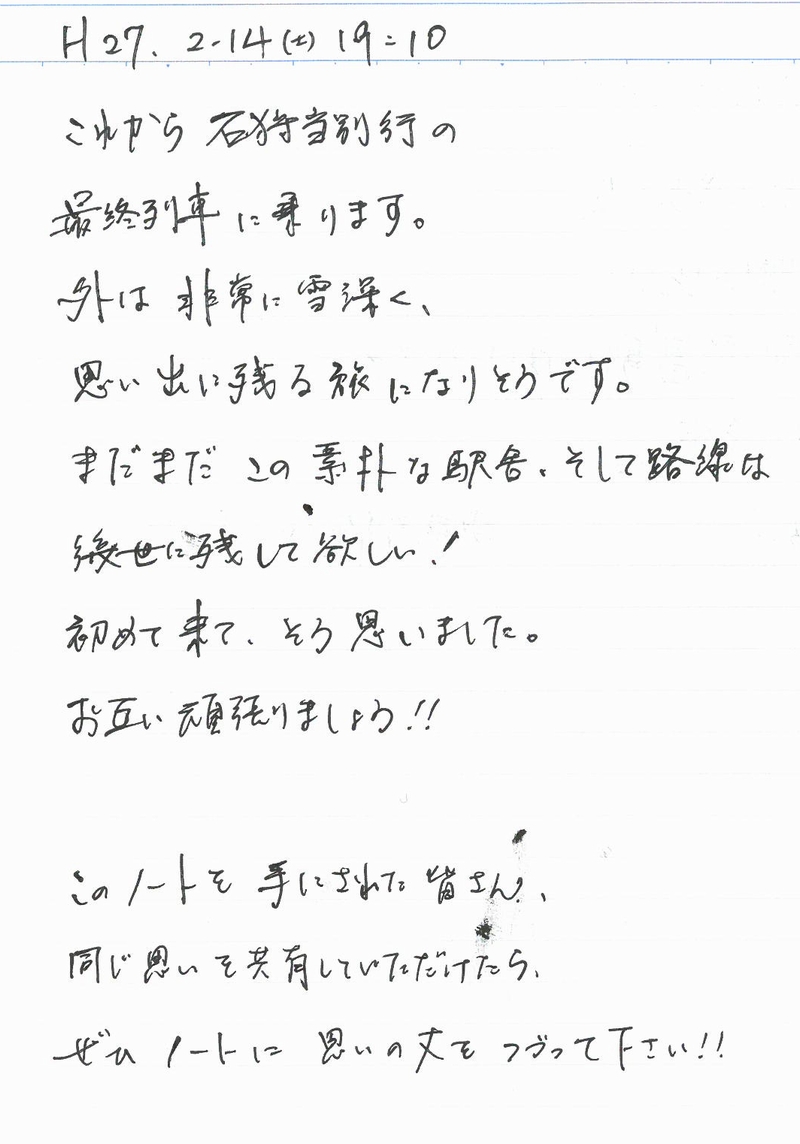 H27. 2.14(土) 19:10
これから 石狩当別行の
最終列車に乗ります。
外は 非常に雪深く、
思い出に残る旅になりそうです。
まだまだ この素朴な駅舎、そして路線は
後世に残して欲しい!
初めて来て、そう思いました。
お互い頑張りましょう!!
このノートを 手にされた皆さん、
同じ思いを共有していただけたら、
ぜひノートに 思いの丈を つづって下さい!!